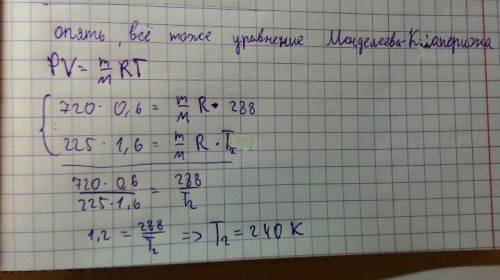 опять, всё тоже уравнение Менделеева-Клапериона
PV = m/M RT
720 · 0,6 = m/M R · 288
225 · 1,6 = m/M R · T₂
720 · 0,6 / 225 · 1,6 = 288 / T₂
1,2 = 288/T₂ => T₂ = 240 K